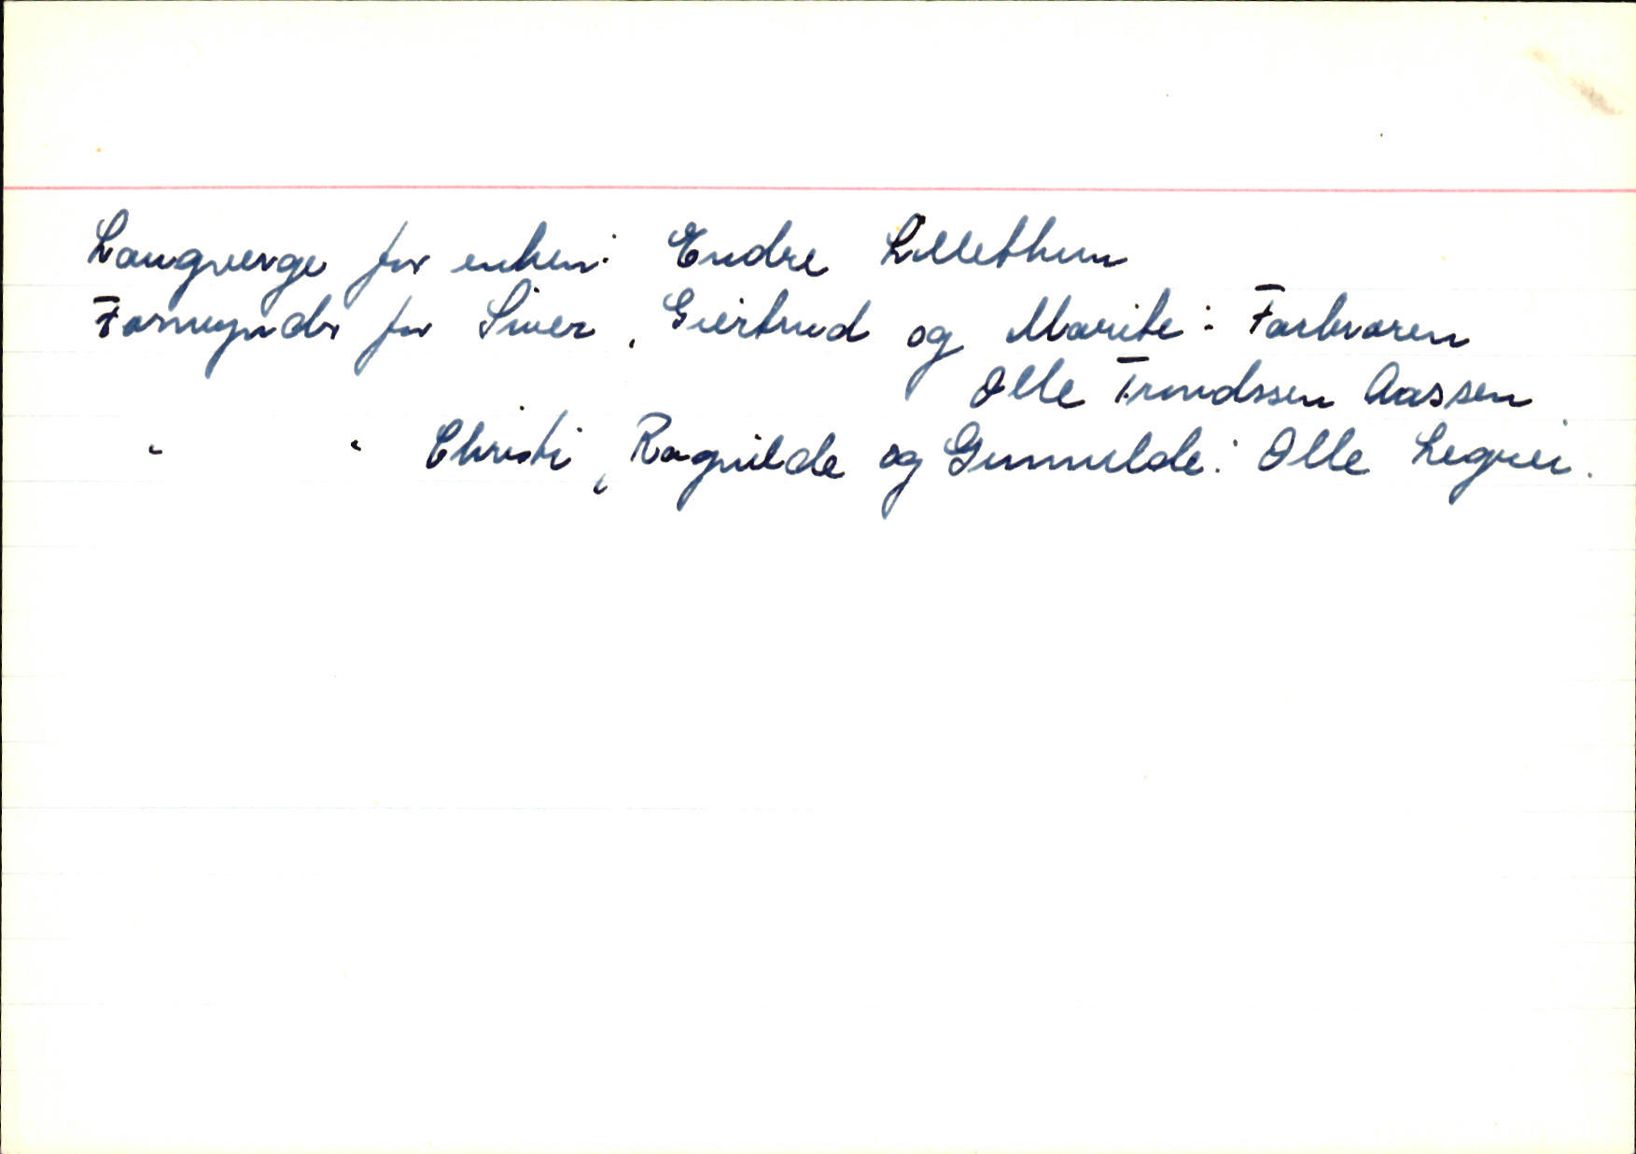 Laugverge for enken: Endre Lillethun
Formynder for Siver, Giertrud og Marite: Farbroren
Olle Trondssen Aassen
" " Christi, Ragnilde og Gunnilde: Olle Legrei.